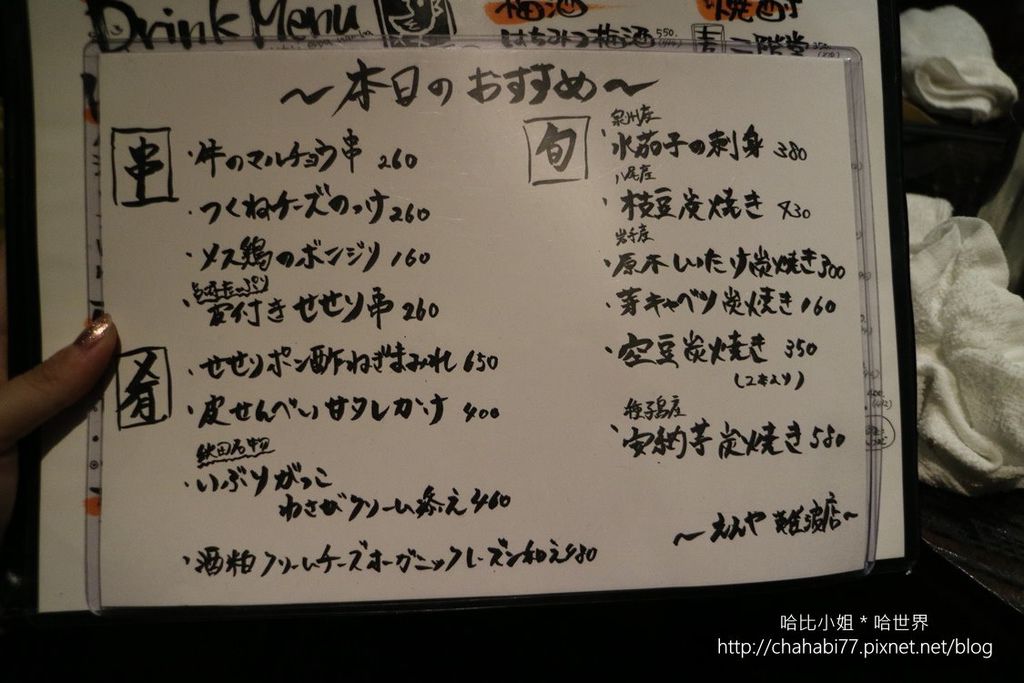 Drink Menu
梅酒
はちみつ梅酒 550
焼酎
麦 二階堂
〜本日のおすすめ〜
串
・牛のマルチョウ串 260
・つくねチーズのっけ 260
・メス鶏のボンジリ 160
・皮付きせせり串 260
肴
・せせりポン酢ねぎまみれ 650
・皮せんべい甘タレがけ 400
秋田名物
・いぶりがっこ
わさびクリーム添え 460
・酒粕クリームチーズオーガニックレーズン和え 480
旬
泉州産
・水茄子の刺身 380
八尾産
・枝豆炭焼き 430
岩手産
・原木しいたけ炭焼き 300
・芽キャベツ炭焼き 160
・空豆炭焼き 350
(2本入り)
種子島産
・安納芋炭焼き 580
〜えんや 難波店〜
哈比小姐 * 哈世界
http://chahabi77.pixnet.net/blog